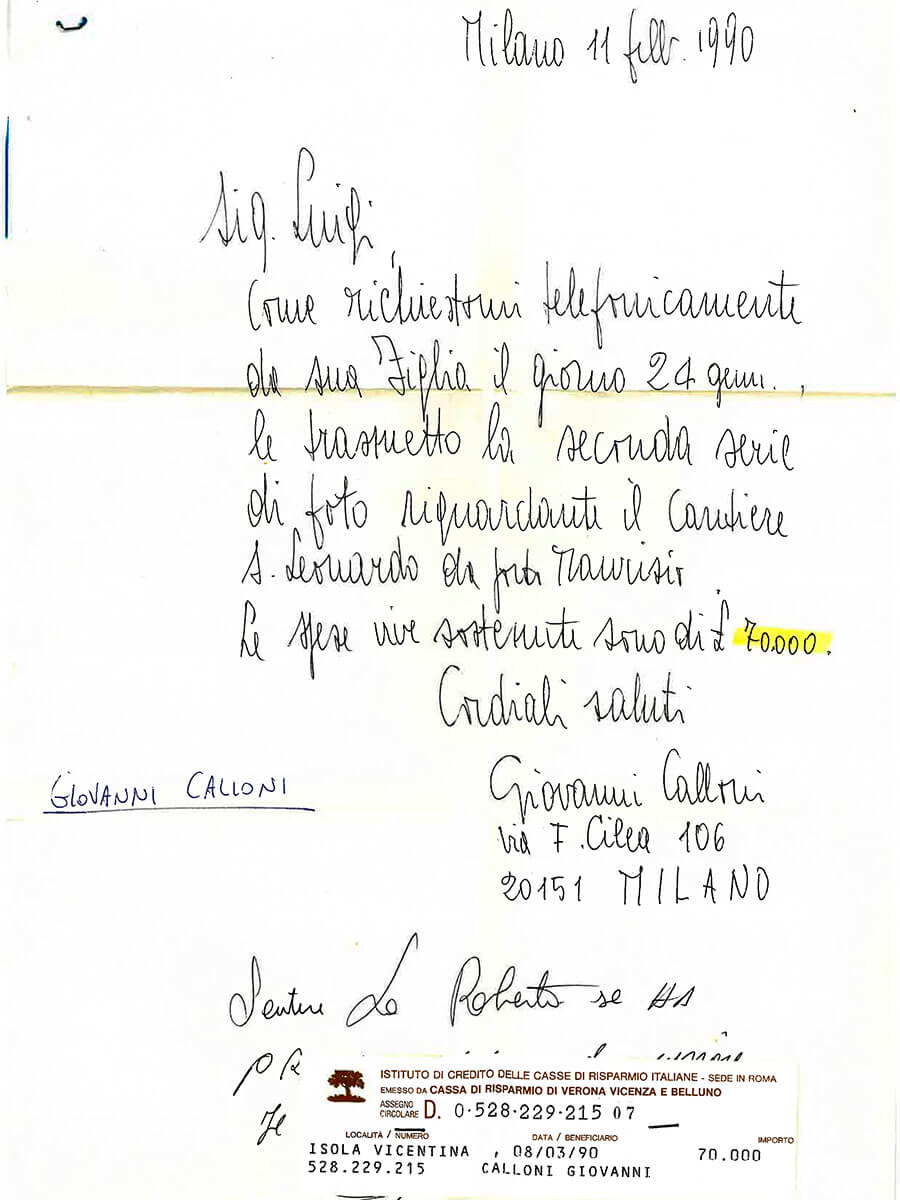 Milano 11 febb. 1990
Sig. Luigi,
Come richiestomi telefonicamente
da sua Figlia il giorno 24 genn.,
le trasmetto la seconda serie
di foto riguardante il Cantiere
S. Leonardo da Porto Maurisio.
Le spese vive sostenute sono di £ 70.000.
Cordiali saluti
Giovanni Calloni
via F. Cilea 106
20151 MILANO
GIOVANNI CALLONI
Sentire Roberto se HA
ISTITUTO DI CREDITO DELLE CASSE DI RISPARMIO ITALIANE - SEDE IN ROMA
EMESSO DA CASSA DI RISPARMIO DI VERONA VICENZA E BELLUNO
ASSEGNO CIRCOLARE D. 0·528·229·215 07
LOCALITÀ / NUMERO DATA / BENEFICIARIO IMPORTO
ISOLA VICENTINA , 08/03/90 70.000
528.229.215 CALLONI GIOVANNI